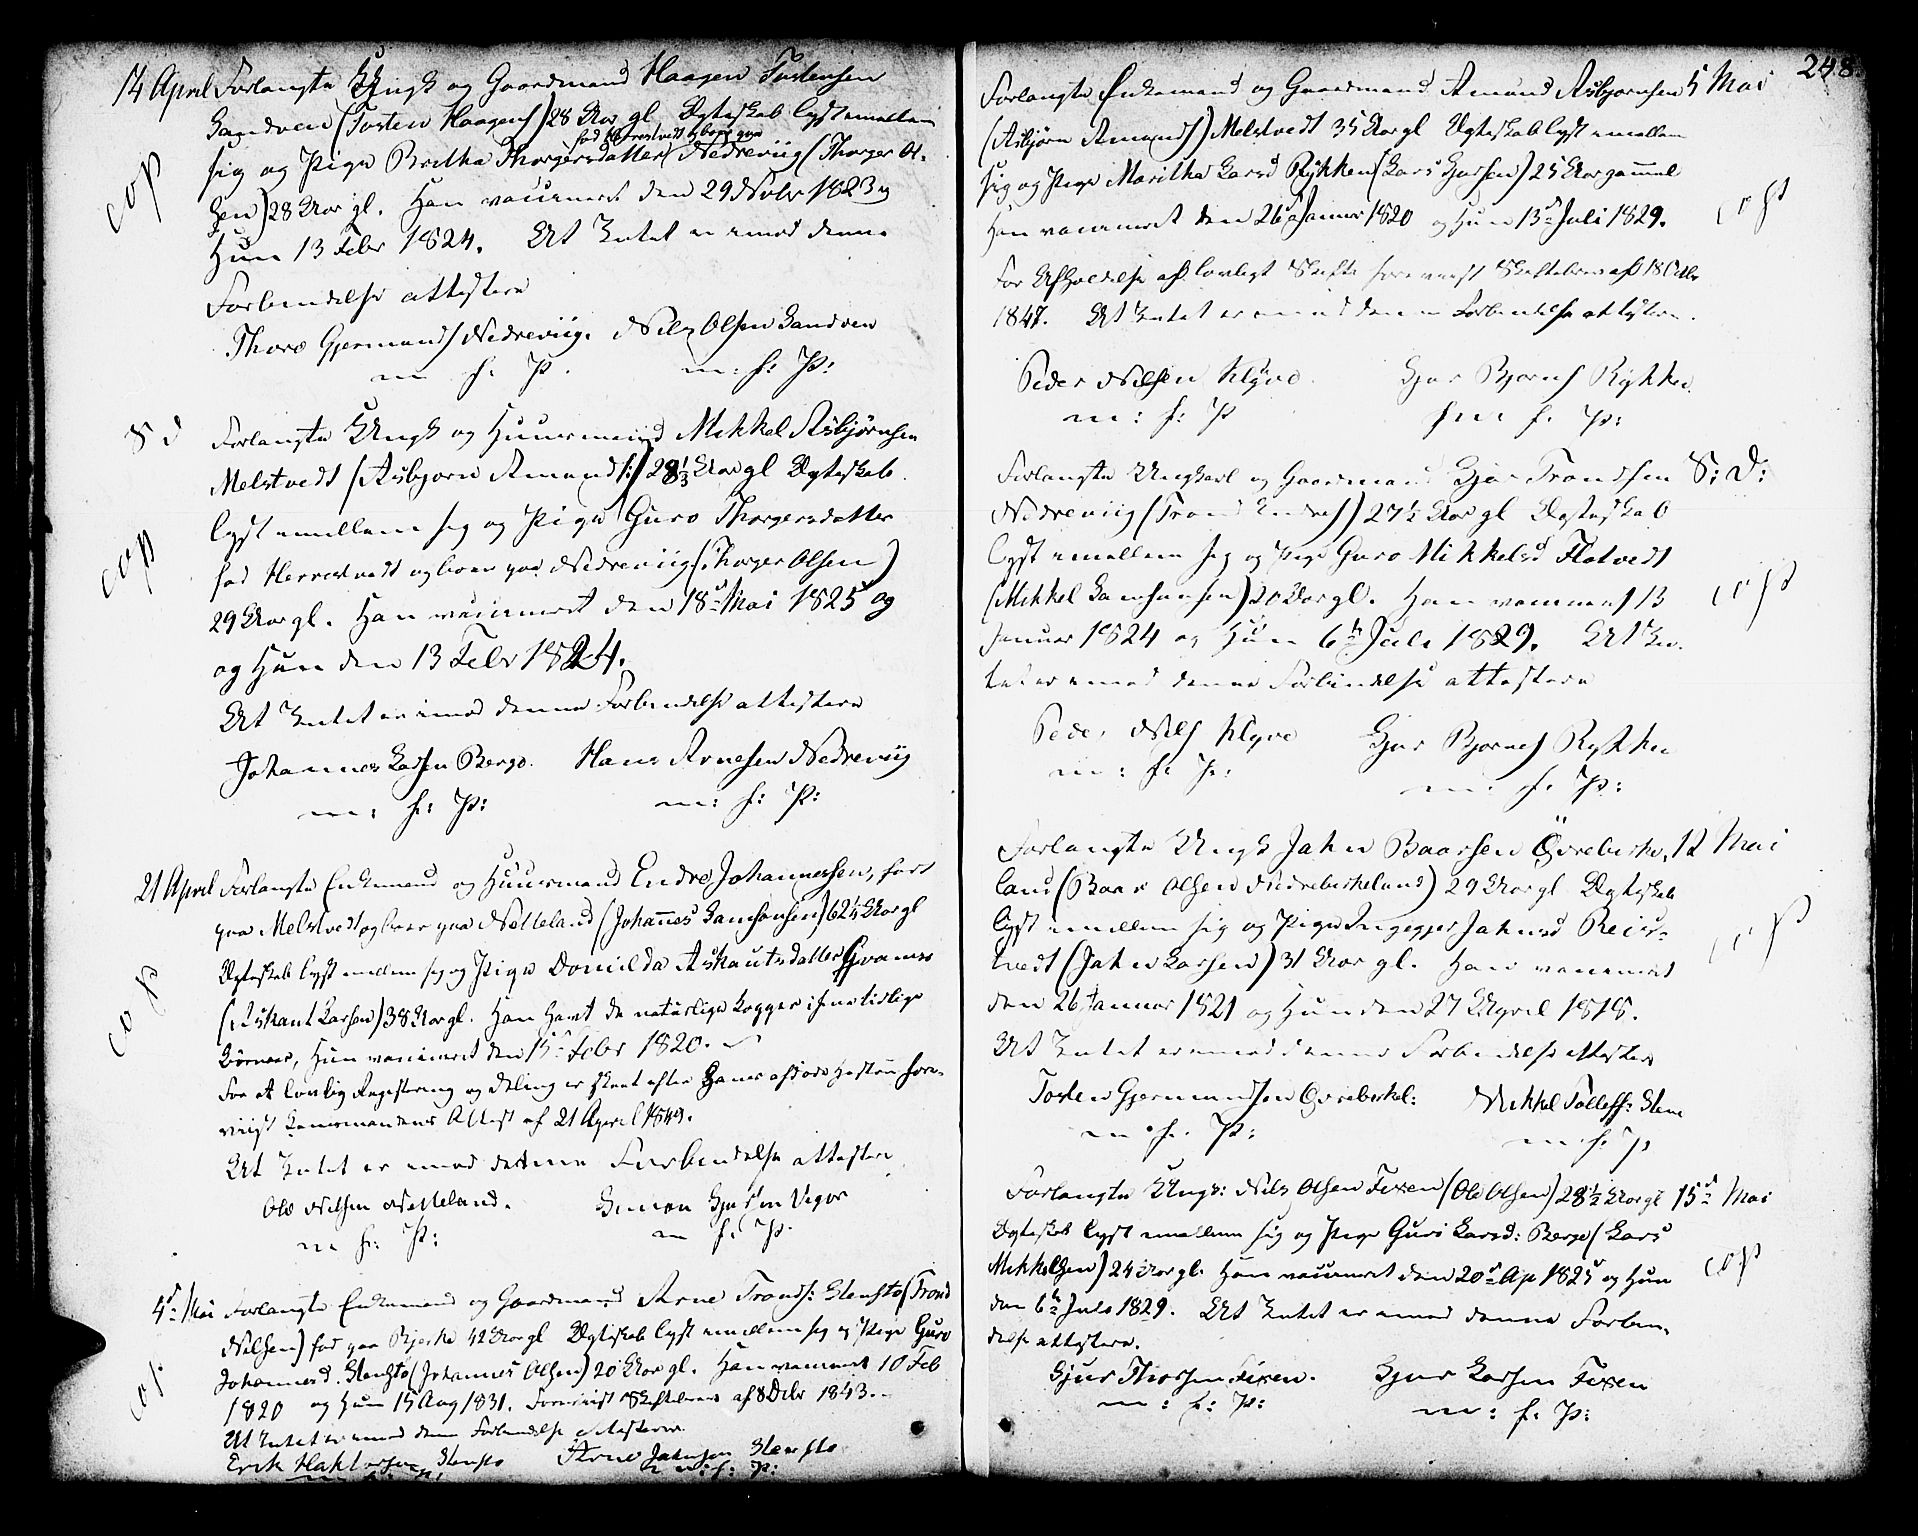 14 April Forlangte Ungk og Gaardmand Haagen Tostensen
Sandven (Tosten Haagens) 28 Aar gl Ægteskab lyst emellem
fød Herrestvedt boer paa
sig og Pige Britha Thorgersdatter Nedreviig (Thorger Ol-
sen) 28 Aar gl. Han vaccineret den 29 Novbr 1823 og
cop
Hun 13 Febr 1824. At Intet er imod denne
Forbindelse attestere
Thore Gjermunds Nedreviig. Nils Olsen Sandven
m f: P. m: f: P:
S D Forlangte Ungk og Huusmand Mikkel Asbjørnsen
Melstvedt (Asbjørn Amunds:) 28 1/3 Aar gl Ægteskab
lyst emellem sig og Pige Guro Thorgersdatter
cop
fød Herrestvedt og boer paa Nedreviig (Thorger Olsen)
29 Aar gl. Han vaccineret den 18de Mai 1825 og
og Hun den 13 Febr 1824.
At Intet er imod denne Forbindelse attestere
Johannes Larsen Berge. Hans Arnesen Nedreviig
m: f: P: m: f: P:
21 April Forlangte Enkemand og Huusmand Endre Johannessen, født
paa Melstvedt og boer paa Netteland (Johannes Samsonsen) 62 1/2 Aar gl
Ægteskab lyst mellem sig og Pige Domilda Askautsdatter Gravnes
cop
(Askaut Larsen) 38 Aar gl. Han havt de naturlige Kopper i sin tidlige
Børneaar, Hun vaccineret den 15de Febr 1820.
For at lovlig Registrering og Deling er skeet efter Hans afdøde Hustru fore-
viist Lensmandens Attest af 21 April 1849.
At Intet er imod denne Forbindelse attestere
Ole Nilsen Netteland. Simon Gjursen Vigør
m f: P: m f: P.
4de Mai Forlangte Enkemand og Gaardmand Arne Tronds: Stensto (Trond
Nilsen) fød paa Bjerke 42 Aar gl Ægteskab lyst emellem sig og Pige Guro
Johannesd. Stensto (Johannes Olsen) 20 Aar gl. Han vaccineret 10 Feb
cop.
1820 og Hun 15 Aug 1831. Foreviist Skiftebrev af 8 Decbr 1843.
At Intet er imod denne Forbindelse attesterer
Erik Stensto Arne Johnsen Stensto
m: f: P:
248
Forlangte Enkemand og Gaardmand Amund Asbjørnsen 5 Mai
(Asbjørn Amunds) Melstvedt 35 Aar gl Ægteskab lyst emellem
sig og Pige Maritha Larsd Rykken (Lars Gjursen) 25 Aar gammel
Han vaccineret den 26de Januar 1820 og Hun 13de Juli 1829.
cop
For Afholdelse af lovligt Skifte foreviist Skiftebrev af 18 Octbr
1847. At Intet er imod denne Forbindelse attestere.
Peder Nilsen Klyve. Gjur Bjørns Rykken
m: f: P m: f. P:
Forlangte Ungkarl og Gaardmand Gjur Trondsen S: D:
Nedreviig (Trond Endres) 27 1/2 Aar gl Ægteskab
lyst emellem sig og Pige Guro Mikkelsd Flotvedt
(Mikkel Samsonsen) 20 Aar gl. Han vaccineret 13
cop
Januar 1824 og Hun 6te Juli 1829. At In-
tet er imod denne Forbindelse attestere
Peder Nils Klyve Gjur Bjørns Rykken
m: f: P: m: f: P:
Forlangte Ungk John Baarsen Øvrebirke, 12 Mai
land (Baar Olsen Nedrebirkeland) 29 Aar gl Ægteskab
lyst emellem sig og Pige Ingegjer Johnsd Reis-
cop
tvedt (John Larsen) 31 Aar gl. Han vaccineret
den 26 Januar 1821 og Hun den 27 April 1818.
At Intet er imod denne Forbindelse attestere
Tosten Gjermundsen Øvrebirkel: Mikkel Tollefs: Stene
m. f. P: m. f: P
Forlangte Ungk: Nils Olsen Fixen (Ole Olsen) 28 1/2 Aar gl 15de Mai
Ægteskab lyst emellem sig og Pige Guri Larsd: Berge (Lars
Mikkelsen) 24 Aar gl. Han vaccineret den 20de Ap 1825 og Hun
cop
den 6te Juli 1829. At Intet er imod denne Forbin-
delse attestere.
Gjur Thorsen Fixen. Gjur Larsen Fixen
m: f: P: m: f: P: